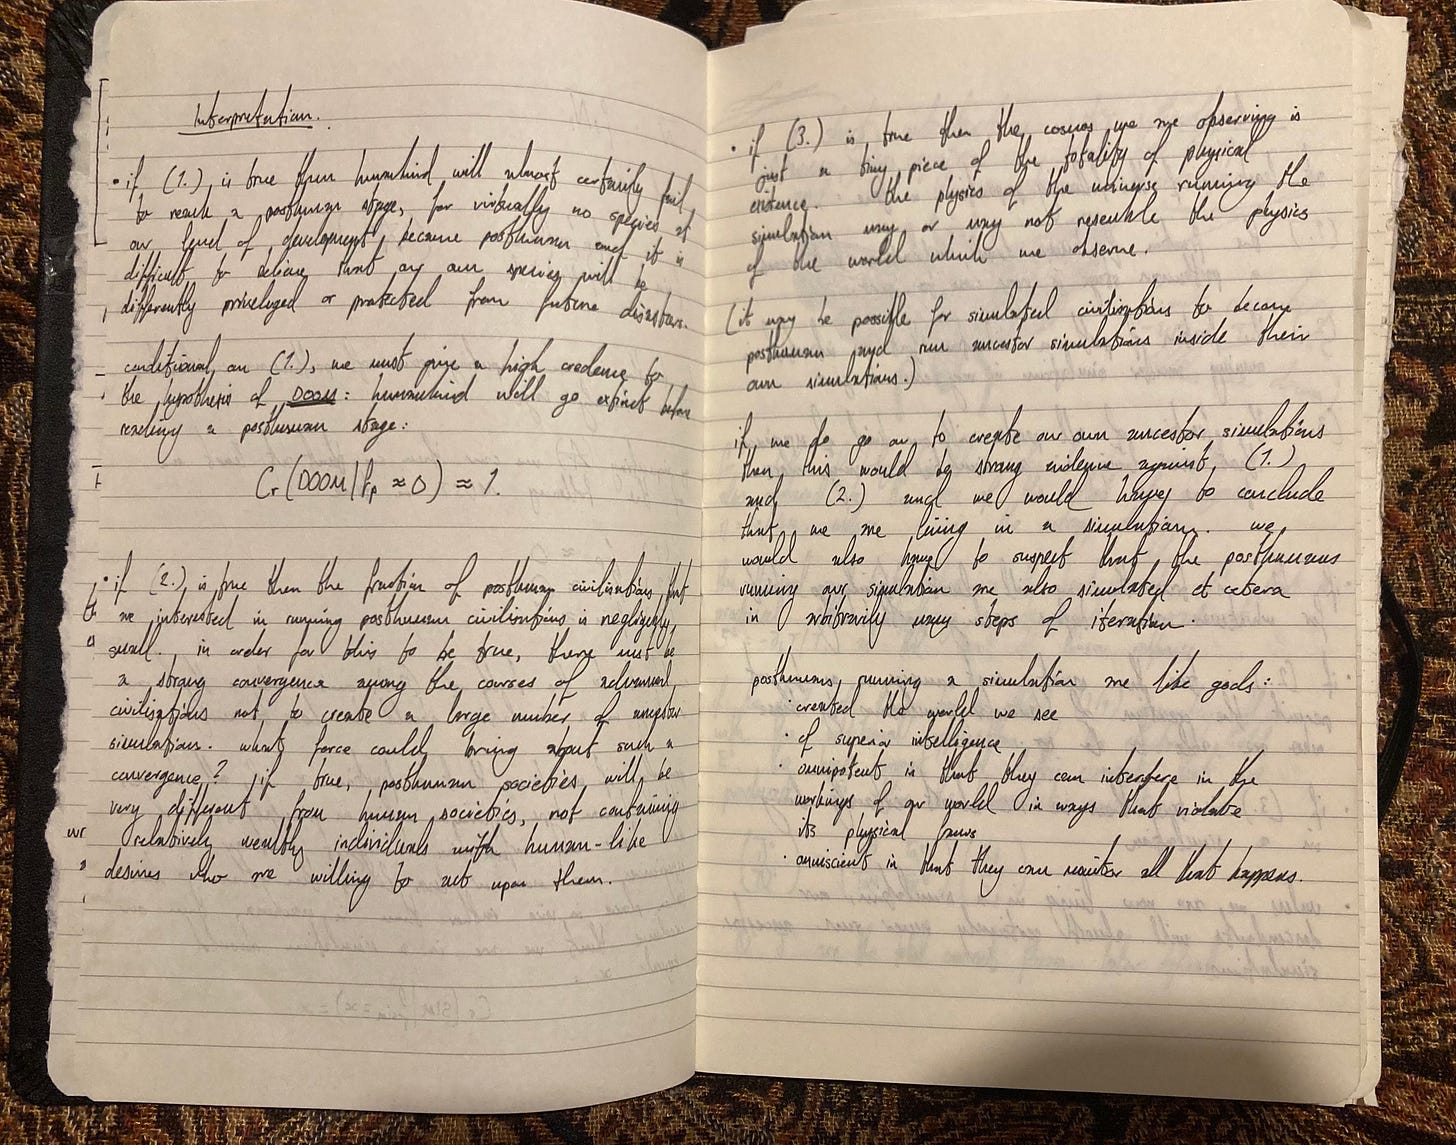 Interpretation.
• if (1.) is true then humankind will almost certainly fail
to reach a posthuman stage, for virtually no species at
our level of development, become posthuman and it is
difficult to believe that our species will be
differently privileged or protected from future disasters.
conditional on (1.), we must give a high credence to
the hypothesis of DOOM: humankind will go extinct before
reaching a posthuman stage:
Cr(DOOM|fp ≈ 0) ≈ 1.
• if (2.) is true then the fraction of posthuman civilisations that
are interested in running posthuman civilisations is negligibly
small. in order for this to be true, there must be
a strong convergence among the courses of advanced
civilisations not to create a large number of ancestor
simulation. what force could bring about such a
convergence? if true, posthuman societies will be
very different from human societies, not containing
relatively wealthy individuals with human-like
desires who are willing to act upon them.
• if (3.) is true then the cosmos we are observing is
just a tiny piece of the totality of physical
existence. the physics of the universe running the
simulation may or may not resemble the physics
of the world which we observe.
(it may be possible for simulated civilisations to become
posthuman and run ancestor simulations inside their
own simulations.)
if we do go on to create our own ancestor simulations
then, this would be strong evidence against (1.)
and (2.) and we would have to conclude
that we are living in a simulation. we
would also have to suspect that the posthumans
running our simulation are also simulated et cetera
in arbitrarily many steps of iteration.
posthumans, running a simulation are like gods:
· created the world we see
· of superior intelligence
· omnipotent in that they can interfere in the
workings of our world in ways that violate
its physical laws
· omniscient in that they can monitor all that happens.